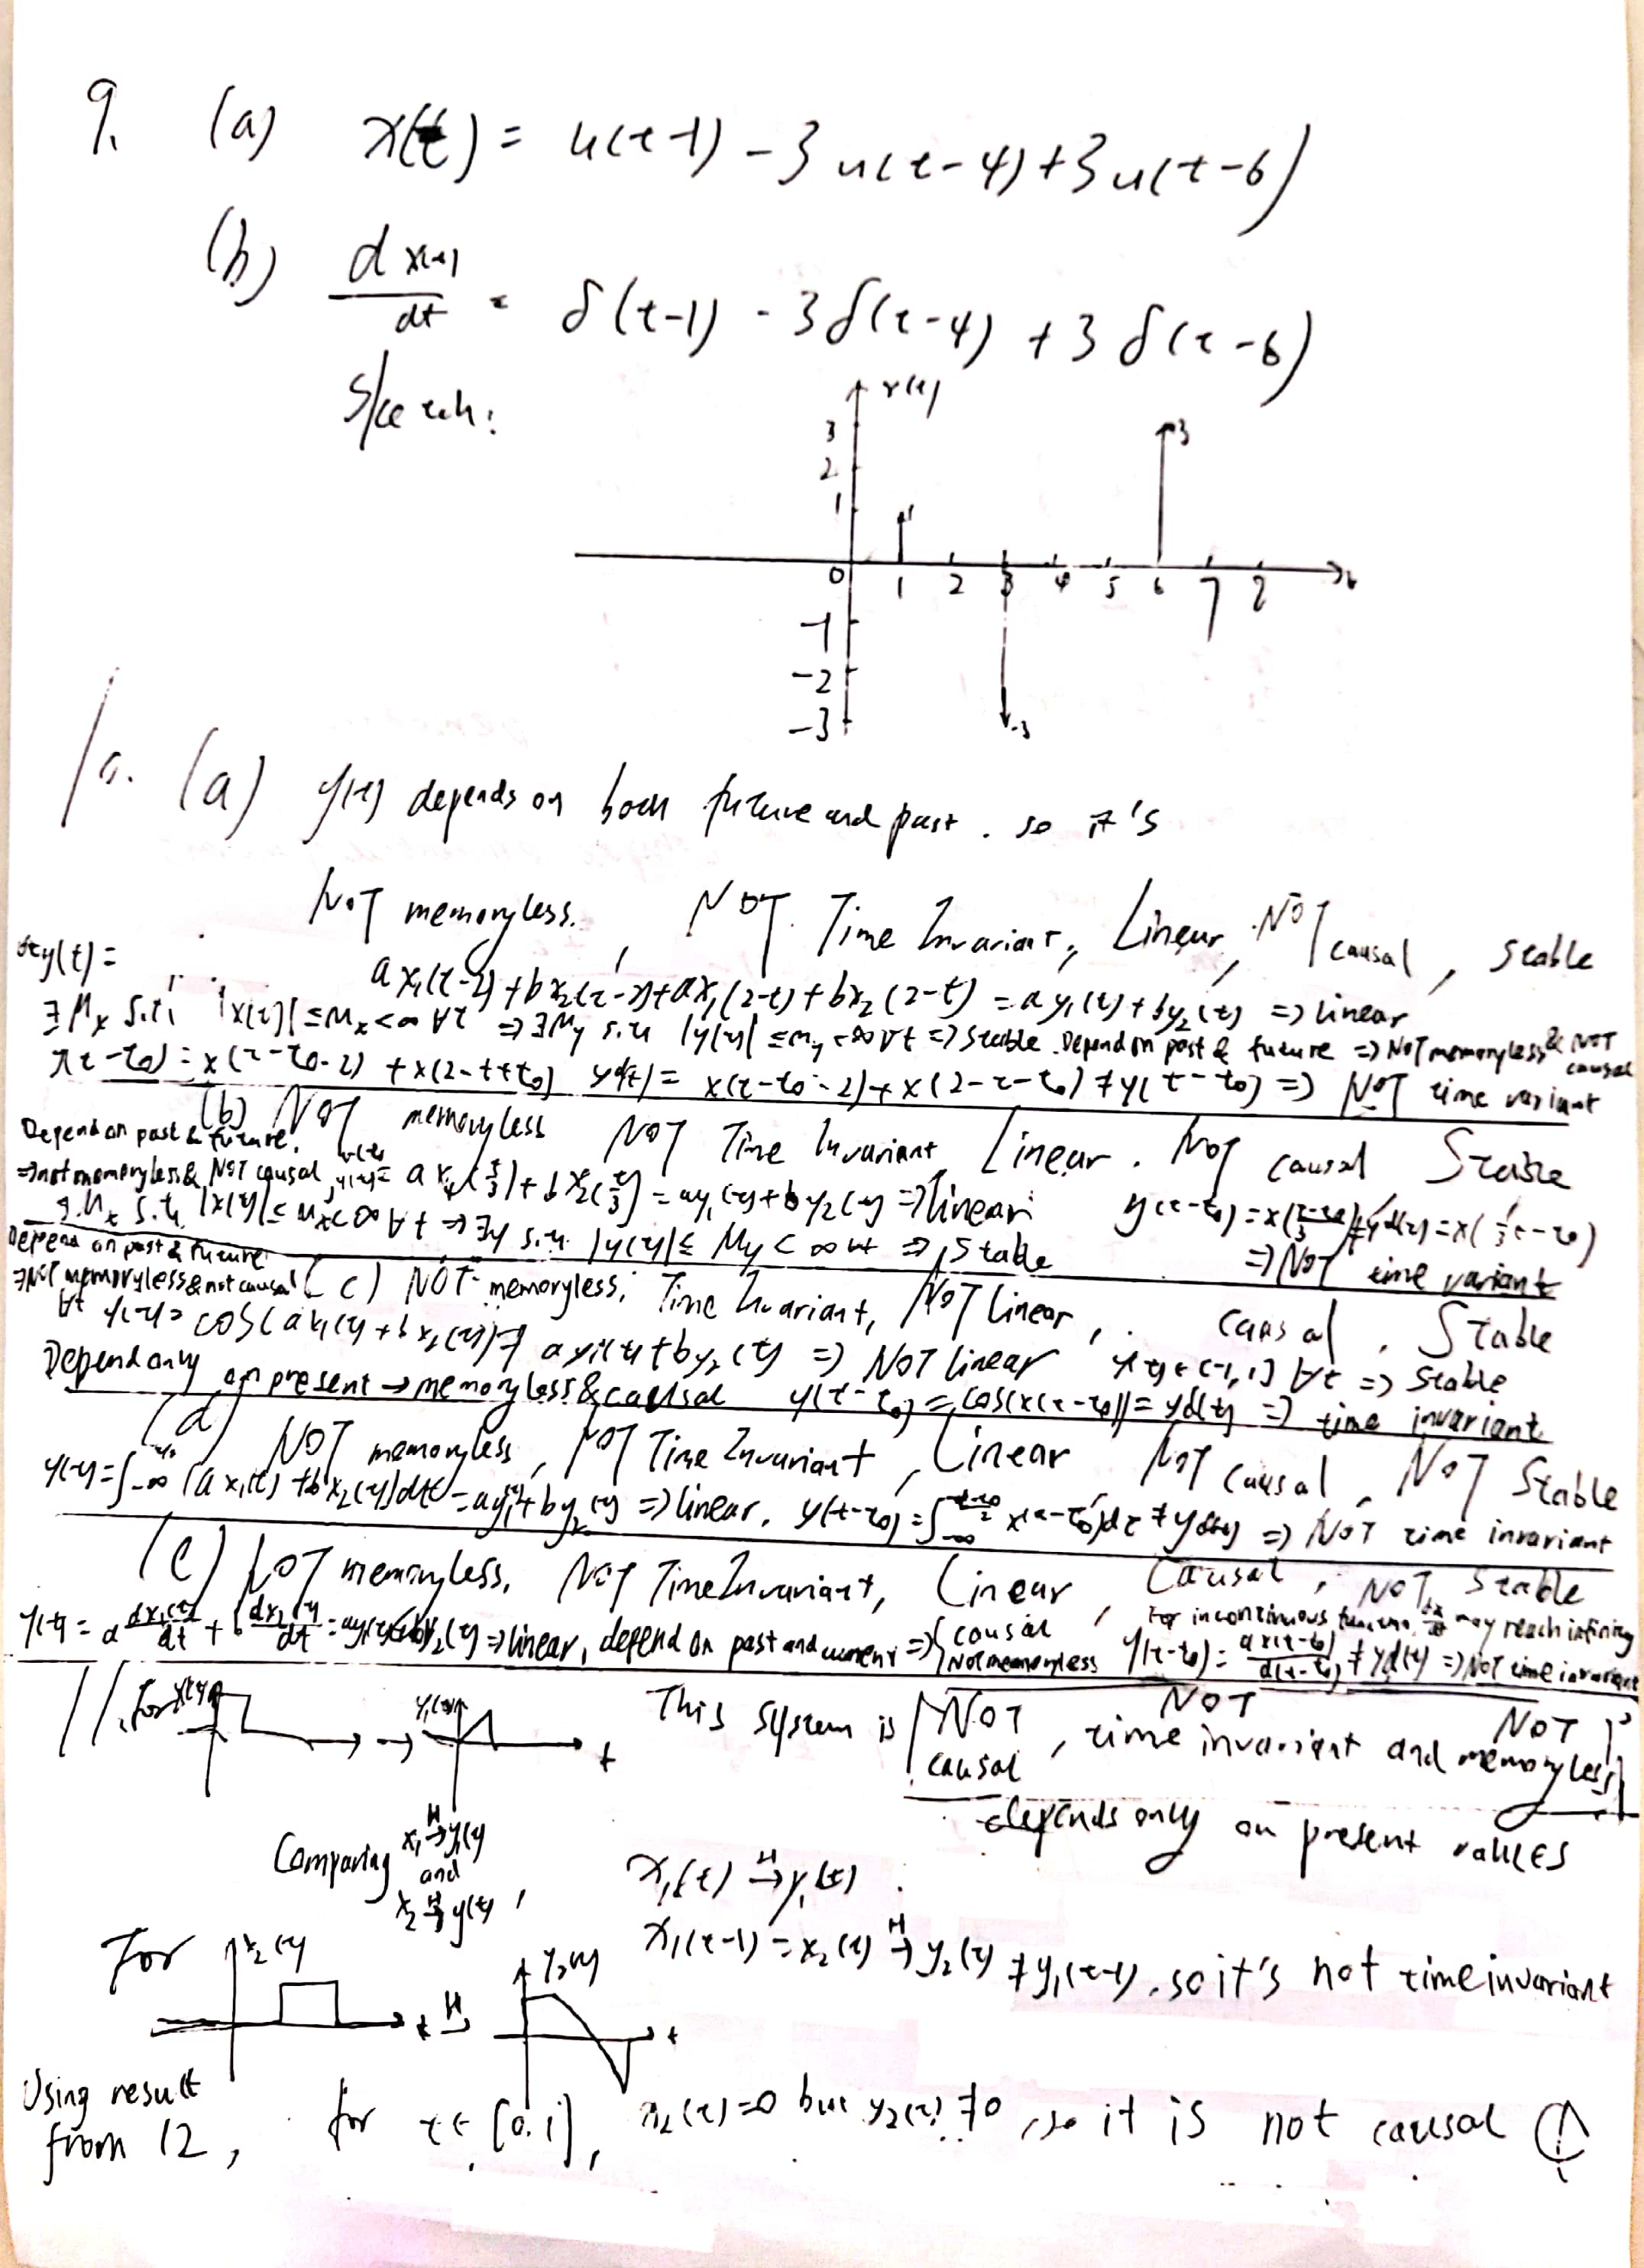 9. (a) x(t) = u(t-1) - 3u(t-4) + 3u(t-6)
(b) dx(t)/dt = δ(t-1) - 3δ(t-4) + 3δ(t-6)
Sketch:
x(t)
3
2
1
3
1
0 1 2 3 4 5 6 7 8 t
-1
-2
-3
-3
10. (a) y(t) depends on both future and past. so it's
NOT memoryless, NOT Time Invariant, Linear, NOT causal, stable
y(t) = ax₁(t-2) + bx₂(t-2) + ax₁(2-t) + bx₂(2-t) = ay₁(t) + by₂(t) => linear
∃ Mx s.t. |x(t)| ≤ Mx < ∞ ∀t => ∃My s.t. |y(t)| ≤ My < ∞ ∀t => Stable. Depend on past & future => NOT memoryless & NOT causal
y(t-t₀) = x(t-t₀-2) + x(2-t+t₀) yd(t) = x(t-t₀-2) + x(2-t-t₀) ≠ y(t-t₀) => NOT time variant
(b) NOT memoryless NOT Time Invariant Linear. NOT causal Stable
Depend on past & future.
=> not memoryless & NOT causal, y(t) = ax₁(t/3) + bx₂(t/3) = ay₁(t) + by₂(t) => linear y(t-t₀) = x((t-t₀)/3) ≠ yd(t) = x(t/3 - t₀)
∃ Mx s.t. |x(t)| ≤ Mx < ∞ ∀t => ∃y s.t. |y(t)| ≤ My < ∞ ∀t => Stable => NOT time variant
Depend on past & future
=> NOT memoryless & not causal (c) NOT memoryless, Time Invariant, NOT linear, causal, Stable
∀t y(t) = cos(ax₁(t) + bx₂(t)) ≠ ay₁(t) + by₂(t) => NOT linear y(t) ∈ [-1,1] ∀t => Stable
Depend only on present → memoryless & causal y(t-t₀) = cos(x(t-t₀)) = yd(t) => time invariant
(d) NOT memoryless, NOT Time Invariant, Linear NOT causal, NOT Stable
y(t) = ∫-∞ (ax₁(t) + bx₂(t))dt = ay₁ + by₂(t) => linear. y(t-t₀) = ∫-∞ x(t-t₀)dt ≠ yd(t) => NOT time invariant
(e) NOT memoryless, NOT Time Invariant, Linear, Causal, NOT Stable
y(t) = a dx₁(t)/dt + b dx₂(t)/dt = ay₁(t) + by₂(t) => linear, depend on past and current => { causal Not memoryless For incontinuous function, dx/dt may reach infinity
y(t-t₀) = dx(t-t₀)/d(t-t₀) ≠ yd(t) => NOT time invariant
11. for x(t) → y₁(t) t This system is NOT causal, NOT time invariant and NOT memoryless
depends only on present values
Comparing x₁ →H y₁(t) and x₂ →H y(t), x₁(t) →H y₁(t).
x₁(t-1) = x₂(t) →H y₂(t) ≠ y₁(t-1), so it's not time invariant
For x₂(t) t →H y₂(t) t
Using result from 12, for t ∈ [0,1], x₂(t) = 0 but y₂(t) ≠ 0, so it is not causal